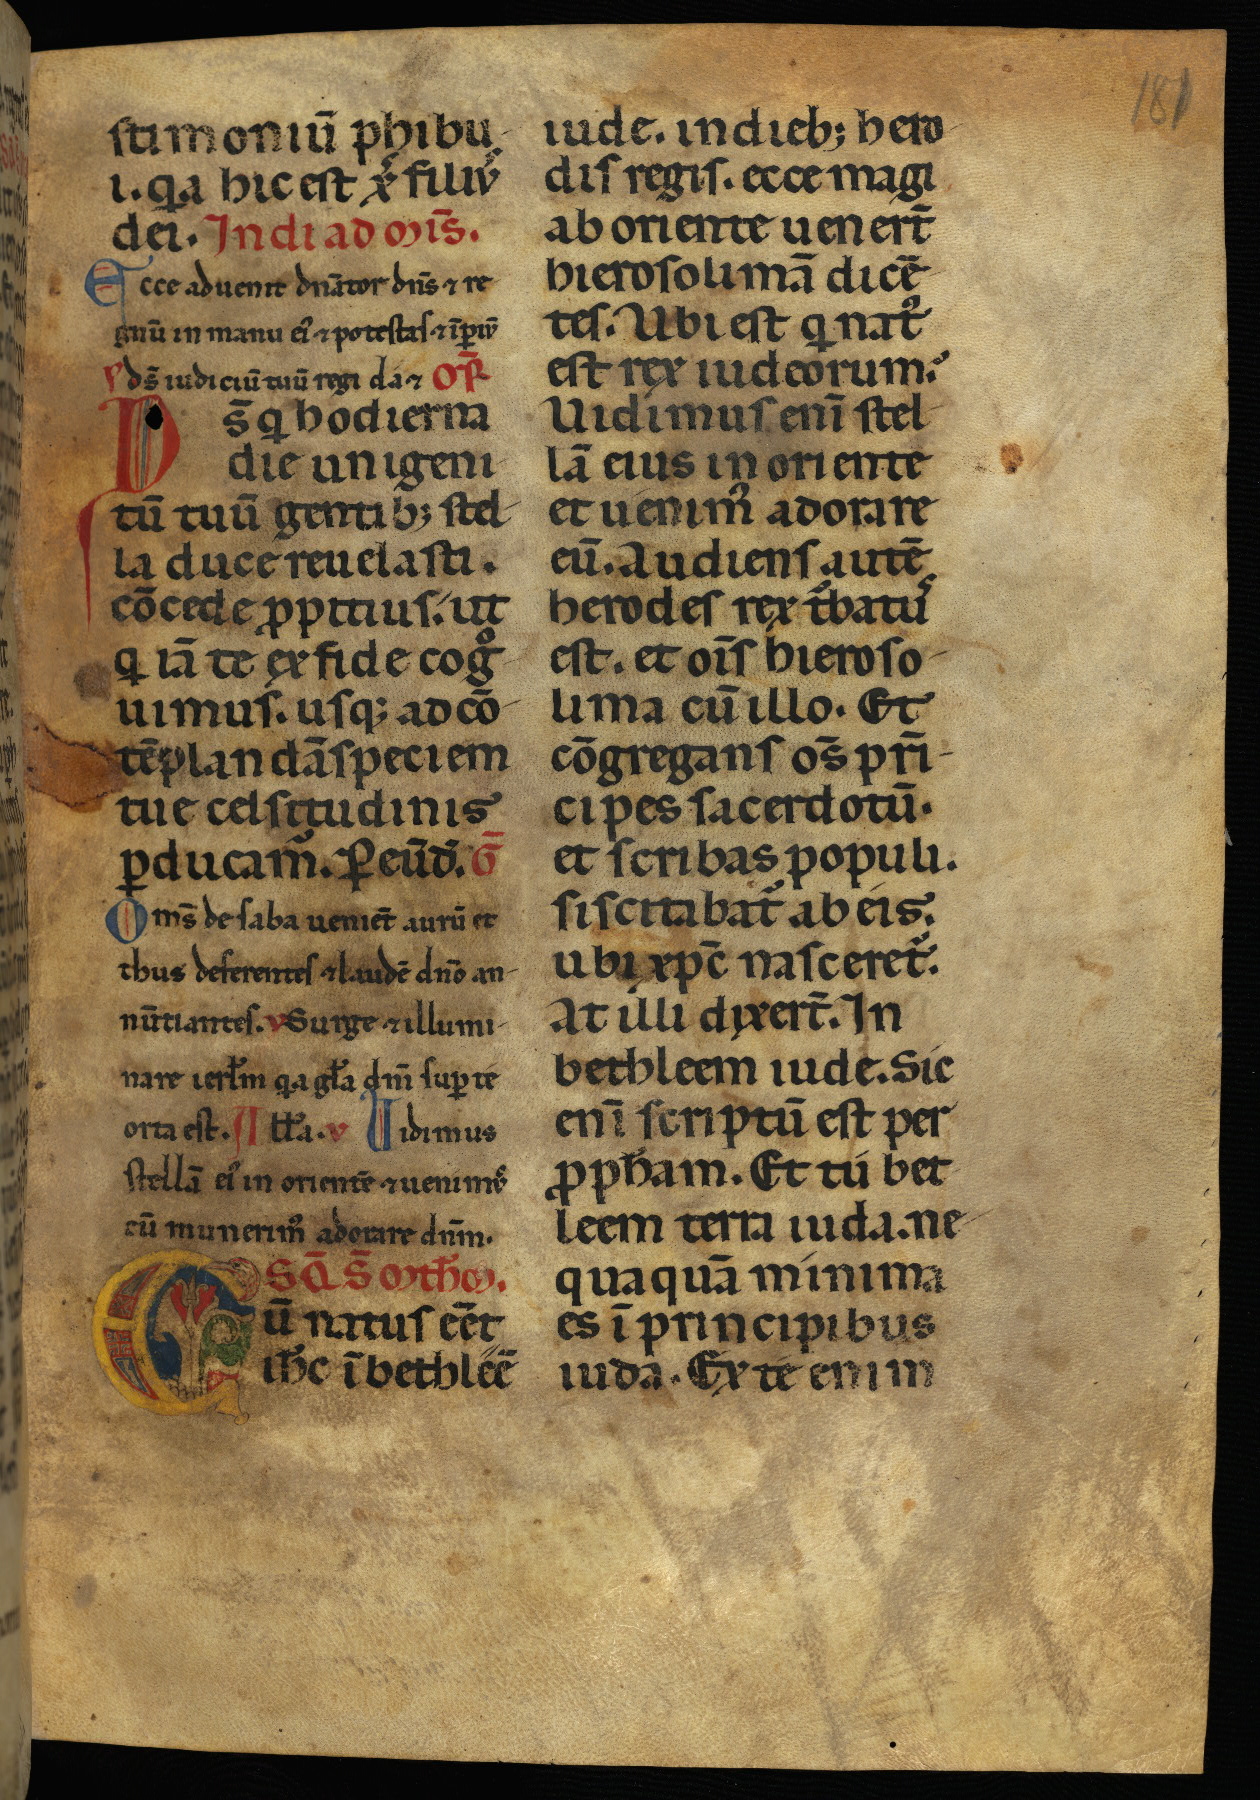 181
stimoniū phibu
i. qa hic est xp̄s filius
dei. In di ad mis̄.
Ecce aduenit dnātor dns̄ ⁊ re
gnū in manu ei᷒ ⁊ potestas ⁊ īpiū
v ds̄ iudiciū tuū regi da ⁊ Or̄
Ds̄ q hodierna
die unigeni
tū tuū gentib; stel
la duce reuelasti.
cōcede ꝓpitius. ut
q iā te ex fide cogͦ
uimus. usq; ad cō
tēplandā speciem
tue celsitudinis
ꝑducam᷑. P eūd. G̅
Oms̄ de saba uenient̄ aurū et
thus deferentes ⁊ laudē dnō an
nūtiantes. v Surge ⁊ illumi
nare ierl̄m qa gl̄a dnī suꝑ te
orta est. All̄a. v Uidimus
stellā ei᷒ in oriente ⁊ uenimus
cū munerib᷒ adorare dnm̄.
SCD̄ S̄ Mthm.
Cū natus eēt
ih̄c ī bethleē
iude. in dieb; hero
dis regis. ecce magi
ab oriente uenert̄
hierosolimā dicē
tes. Ubi est q nat᷒
est rex iudeorum.
Uidimus enī stel
lā eius in oriente
et uenim᷒ adorare
eū. Audiens autē
herodes rex t̄batus
est. et ois̄ hieroso
lima cū illo. Et
cōgregans os̄ prī
cipes sacerdotū.
et scribas populi.
siscitabat᷑ ab eis.
ubi xpc̄ nasceret᷑.
At illi dixert̄. In
bethleem iude. Sic
enī scriptū est per
ꝓph̄am. Et tu bet
leem terra iuda. ne
quaquā minima
es ī principibus
iuda. Ex te enim